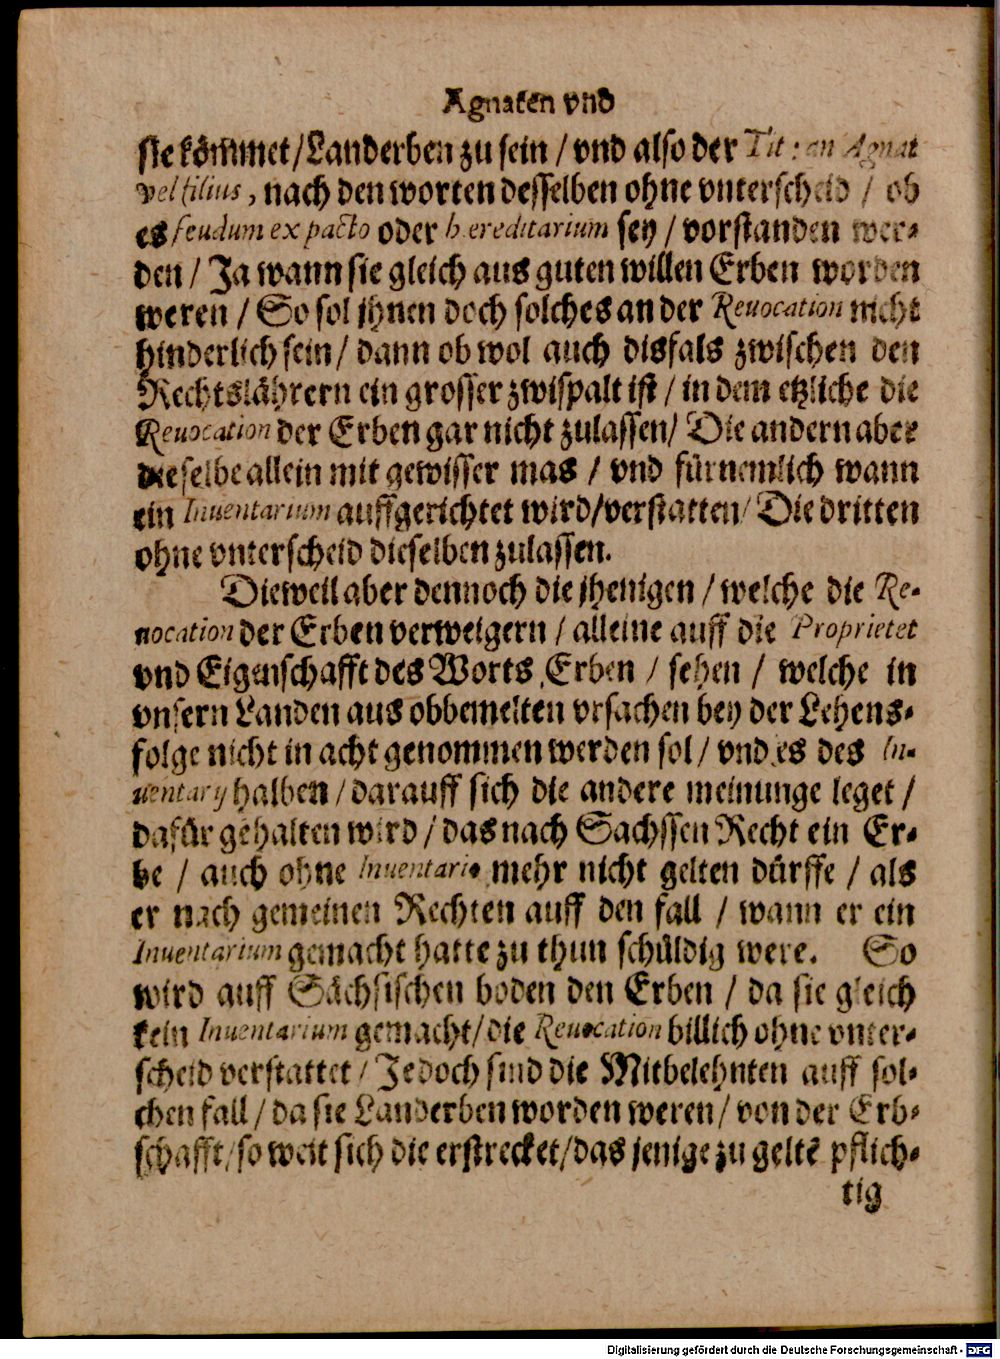 Agnaten vnd
sie kömmet/Landerben zu sein / vnd also der Tit: an Agnat
vel filius, nach den worten desselben ohne vnterscheid / ob
es feudum ex pacto oder hæreditarium sey / vorstanden wer-
den / Ja wann sie gleich aus guten willen Erben worden
weren / So sol jhnen doch solches an der Reuocation nicht
hinderlich sein / dann ob wol auch disfals zwischen den
Rechtslährern ein grosser zwispalt ist / in dem etzliche die
Reuocation der Erben gar nicht zulassen/ Die andern aber
dieselbe allein mit gewisser mas / vnd fürnemlich wann
ein Inuentarium auffgerichtet wird/verstatten/ Die dritten
ohne vnterscheid dieselben zulassen.
Dieweil aber dennoch die jhenigen / welche die Re-
uocation der Erben verweigern / alleine auff die Proprietet
vnd Eigenschafft des Worts, Erben / sehen / welche in
vnsern Landen aus obbemelten vrsachen bey der Lehens-
folge nicht in acht genommen werden sol / vnd es des In-
uentarij halben / darauff sich die andere meinunge leget /
dafür gehalten wird / das nach Sachssen Recht ein Er-
be / auch ohne Inuentario mehr nicht gelten dürffe / als
er nach gemeinen Rechten auff den fall / wann er ein
Inuentarium gemacht hatte zu thun schüldig were. So
wird auff Sächsischen boden den Erben / da sie gleich
kein Inuentarium gemacht/die Reuocation billich ohne vnter-
scheid verstattet / Jedoch sind die Mitbelehnten auff sol-
chen fall / da sie Landerben worden weren / von der Erb-
schafft/so weit sich die erstrecket/das jenige zu geltē pflich-
tig
Digitalisierung gefördert durch die Deutsche Forschungsgemeinschaft - DFG